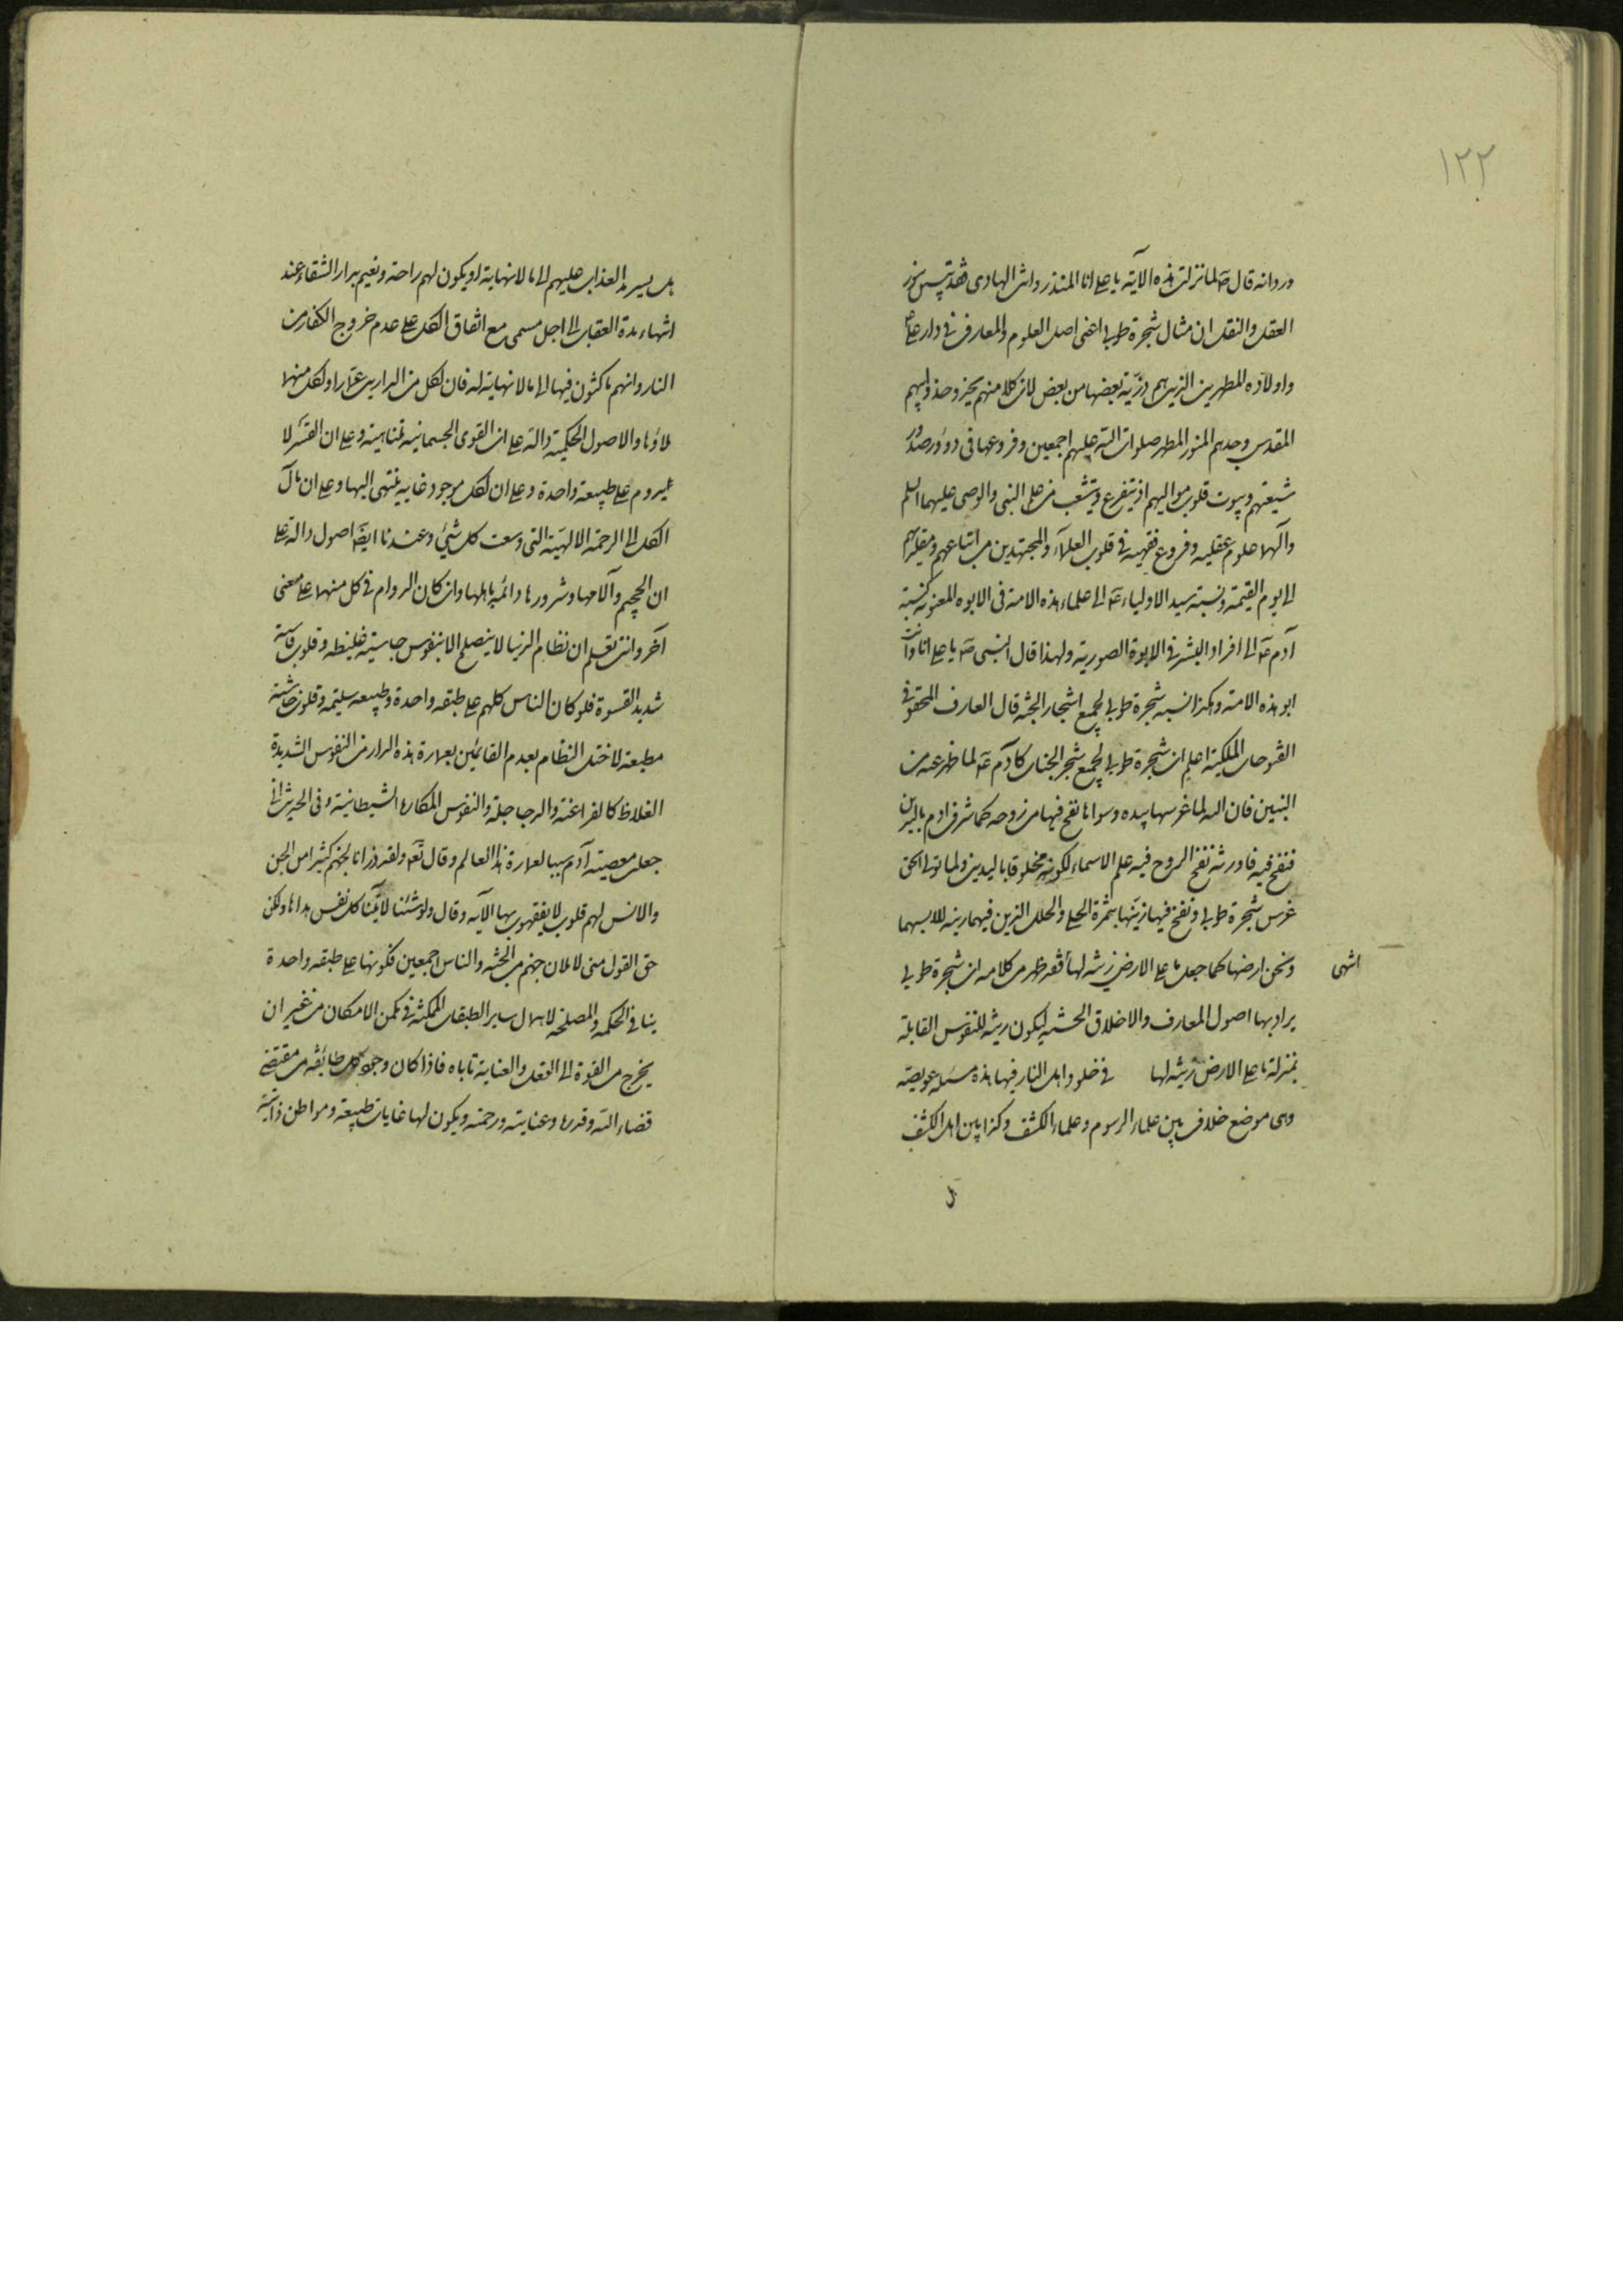 ١٢٢
ورد انه قال ص لما نزلت هذه الآية يا علي انا المنذر وانت الهادي فقد تبين بنور
العقل والنقل ان مثال شجرة طوبى اعني اصل العلوم والمعارف في دار علي ع
واولاده المطهرين الذين هم ذرية بعضها من بعض لان كلا منهم يحيز وحذو ابيهم
المقدس وجدهم المنور المطهر صلوات الله عليهم اجمعين وفروعها في دور وصدور
شيعتهم وبيوت قلوب مواليهم اذ يتفرع ويتشعب من علم النبي والوصي عليهما السلم
وآلهما علوم عقليه وفروع فقهيه في قلوب العلماء والمجتهدين من اتباعهم ومقلديهم
الى يوم القيمة ونسبة سيد الاولياء ع الى علماء هذه الامة في الابوه المعنويه كنسبة
آدم ع الى افراد البشر في الابوة الصورية ولهذا قال النبي ص يا علي انا وانت
ابو هذه الامة وهكذا نسبه شجرة طوبى لجميع اشجار الجنة قال العارف المحقق في
الفتوحات الملكية اعلم ان شجرة طوبى لجميع شجر الجنات كآدم ع لما ظهر عنه من
النبيين فان الله لما غرسها بيده وسواها نفخ فيها من روحه كما شرف ادم باليدين
فنفخ فيه فاورثه نفخ الروح فيه علم الاسماء لكونه مخلوقا باليدين ولما تولى الحق
غرس شجرة طوبى ونفخ فيها زينتها بثمرة الحلي والحلل الذين فيهما زينه للابسهما
ونحن ارضها كما جعل ما على الارض زينه لها فقد ظهر من كلامه ان شجرة طوبى
انتهى
يراد بها اصول المعارف والاخلاق الحسنه ليكون زينه للنفوس القابلة
بمنزلة ما على الارض زينة لها في خلود اهل النار فيها هذه مسئله عويصة
وهي موضع خلاف بين علماء الرسوم وعلماء الكشف وكذا بين اهل الكشف
هل يسرمد العذاب عليهم الى ما لا نهاية او يكون لهم راحة ونعيم بدار الشقاء عند
انتهاء مدة العقاب الى اجل مسمى مع اتفاق الكل على عدم خروج الكفار من
النار وانهم ماكثون فيها الى ما لا نهاية له فان لكل من الدارين عمارا ولكل منهما
ملاؤها والاصول الحكمية دالة على ان القوى الجسمانيه متناهية وعلى ان القسر لا
يدوم على طبيعة واحدة وعلى ان لكل موجود غايه ينتهي اليها وعلى ان مآل
الكل الى الرحمة الالهية التي وسعت كل شيء وعندنا ايضا اصول دالة على
ان الجحيم وآلامها وشرورها دائمه باهلها وان كان الدوام في كل منهما على معنى
آخر وانت تعلم ان نظام الدنيا لا ينصلح الا بنفوس جاسية غليظه وقلوب قاسية
شديد القسوة فلو كان الناس كلهم على طبقه واحدة وطبيعه سليمه وقلوب خاشية
مطيعة لاختل النظام بعدم القائمين بعمارة هذه الدار من النفوس الشديدة
الغلاظ كالفراعنة والدجاجلة والنفوس المكاره الشيطانية وفي الحديث اني
جعلت معصية آدم سببا لعمارة هذا العالم وقال تع ولقد ذرانا لجهنم كثيرا من الجن
والانس لهم قلوب لا يفقهون بها الآيه وقال ولو شئنا لآتينا كل نفس هداها ولكن
حق القول مني لاملان جهنم من الجنه والناس اجمعين فكونها على طبقه واحدة
ينافي الحكمه والمصلحه لاهمال ساير الطبقات الممكنة في مكمن الامكان من غير ان
يخرج من القوة الى الفعل والعناية تاباه فاذا كان وجود كل طائفه من مقتضى
قضاء الله وقدره وعنايته ورحمته ويكون لها غايات طبيعة ومواطن ذاتية